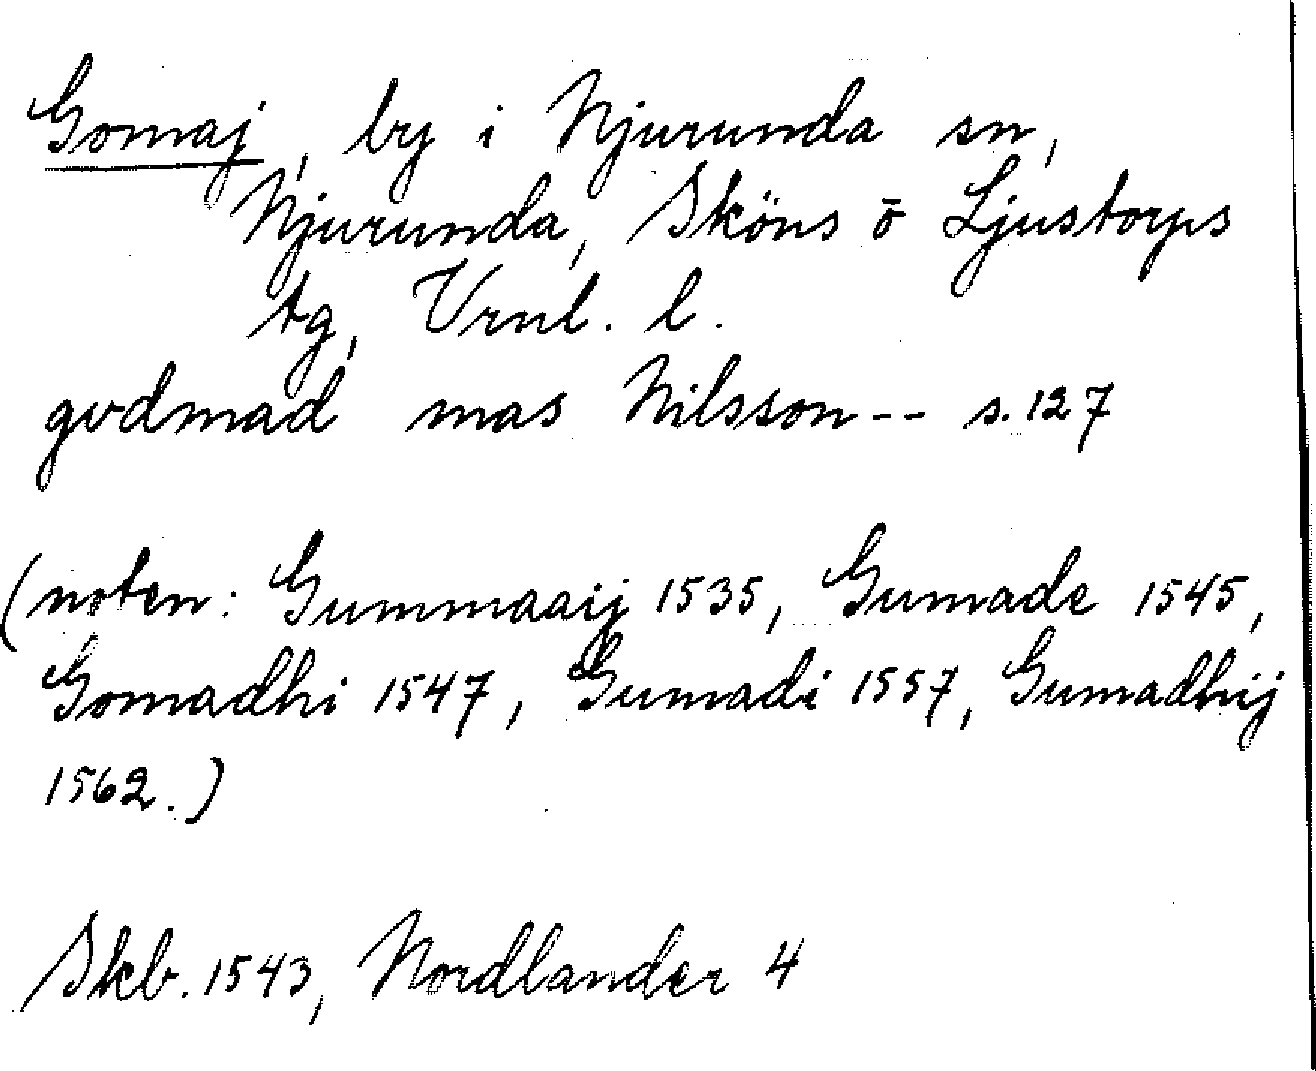 Gomaj, by i Njurunda sn,
Njurunda, Sköns o Ljustorps
tg, Vrnl. l.
gvdmad mas Nilsson -- s. 127
(noten: Gummaaij 1535, Gumade 1545,
Gomadhi 1547, Gumadi 1557, Gumadhij
1562.)
Skb. 1543, Nordlander 4